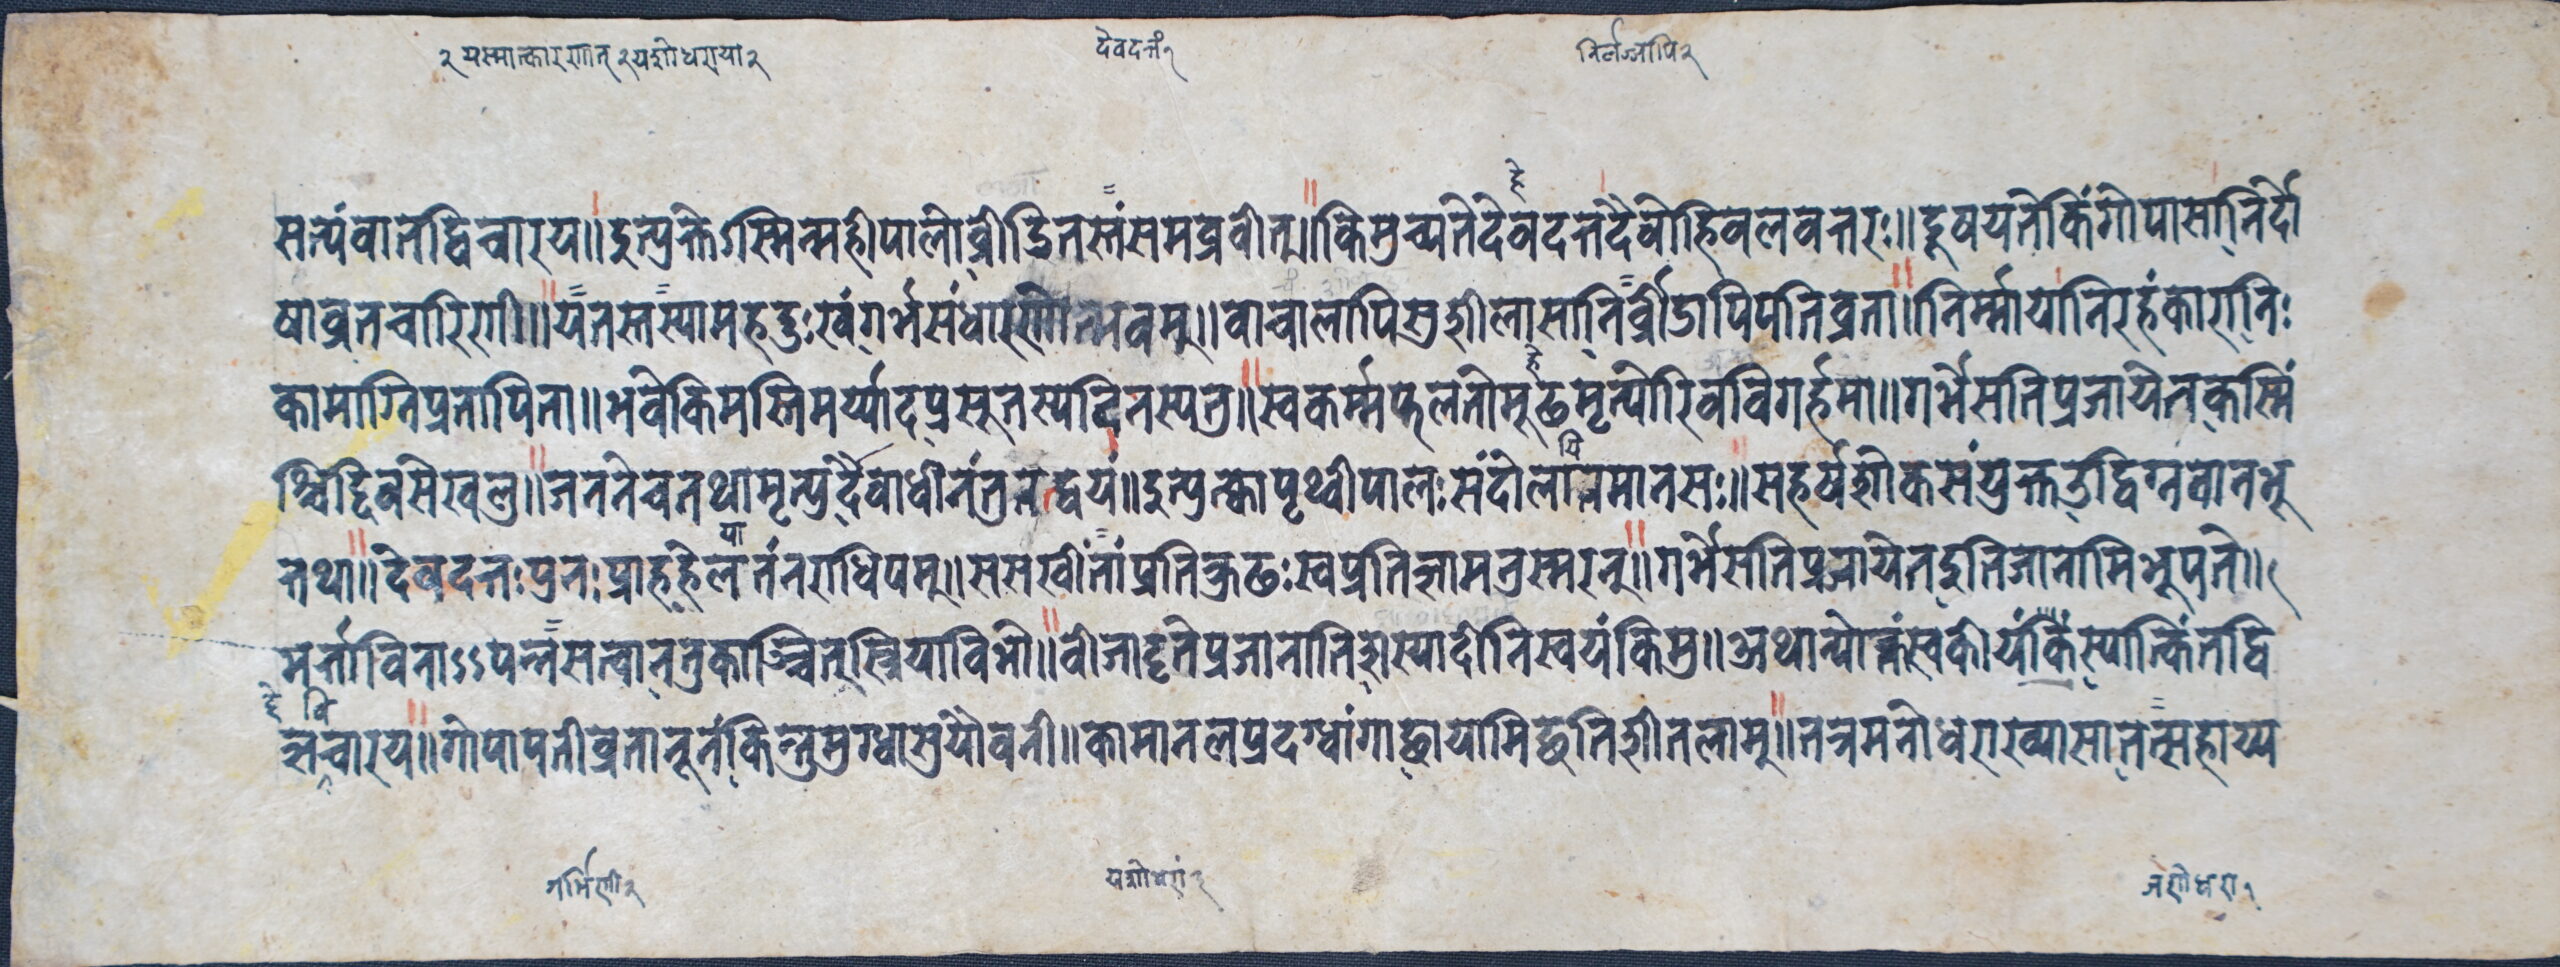 २ यस्मात्कारणात् २ यशोधराया २
देवदत्तं १
निर्लज्जापि २
सत्यं वा तद्विचारय॥ इत्युक्तेऽस्मिन्महीपालो व्रीडितस्तं समब्रवीत्॥ किमुच्यते देवदत्त दैवो हि बलवत्तरः॥ दूषयते किं गोपा सा निर्दो
षा व्रतचारिणी॥ यतस्तस्या महद्दुःखं गर्भसंधारणोद्भवम्॥ वाचालापि सुशीला सा निर्व्रीडापि पतिव्रता॥ निर्म्माया निरहंकारा निः
कामाग्निप्रतापिता॥ भवे किमस्ति मर्य्याद प्रसूतस्य दितस्य तु॥ स्वकर्म्मफलतो मूढ मृत्योरिव विगर्हमा॥ गर्भे सति प्रजायेत कस्मिं
श्चिद्दिवसे खलु॥ जनने च तथा मृत्यु दैवाधीनं तु तद्द्वयं॥ इत्युक्त्वा पृथ्वीपालः संदोलायितमानसः॥ सहर्षशोकसंयुक्त उद्विग्न वान भू
त्तथा॥ देवदत्तः पुनः प्राह हेलया तं नराधिपम्॥ स सखीं तां प्रति क्रुद्धः स्वप्रतिज्ञामनुस्मरन्॥ गर्भे सति प्रजायेत इति जानामि भूपते॥
भर्त्ता विनाऽऽपन्नसत्वा न तु काञ्चित् स्त्रिया विभो॥ वीजादृते प्रजानाति शस्यादीनि स्वयं किमु॥ अथान्योक्तं स्वकीयं किं स्यात्किं तद्वि
हे वि
चारय॥ गोपा पतीव्रता नूनं किन्तु मुग्धा सुयौवनी॥ कामानलप्रदग्धांगा छायामिच्छति शीतलाम्॥ तत्र मनोधराख्या सा तत्सहाय्य
गर्भिणी २
यशोधरां २
यशोधरा १